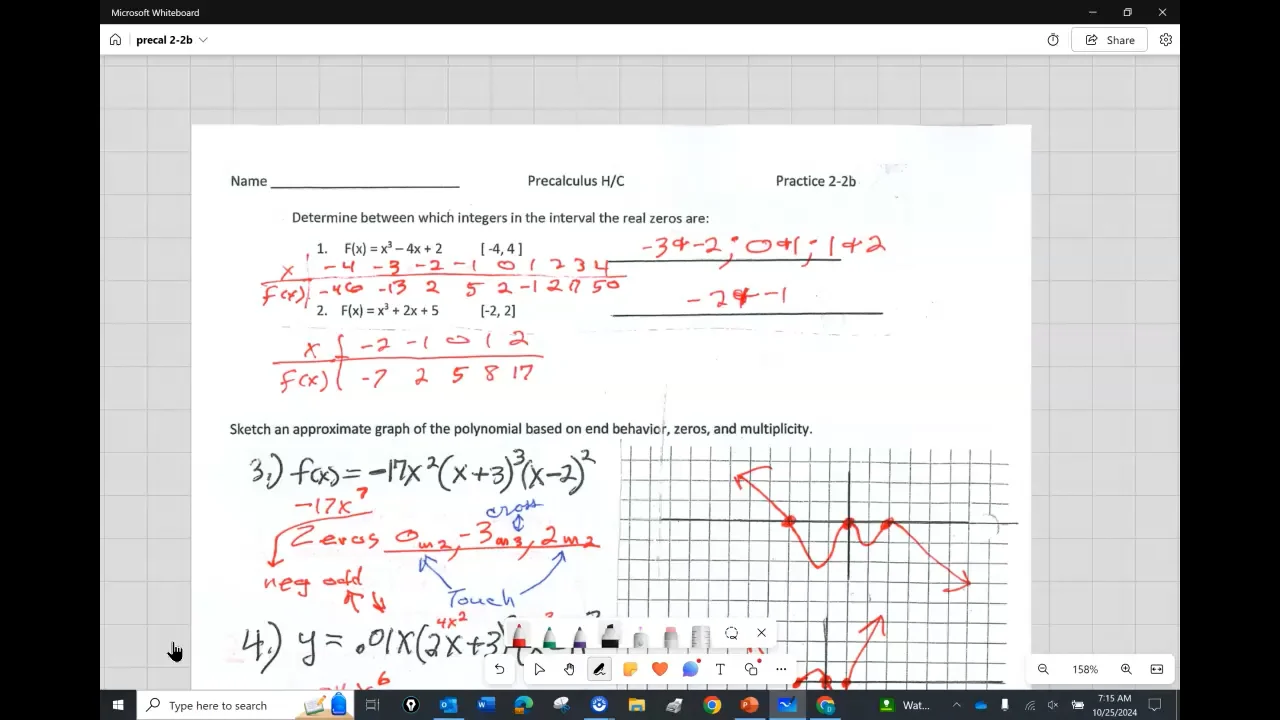 Microsoft Whiteboard
precal 2-2b
Share
Name
Precalculus H/C
Practice 2-2b
Determine between which integers in the interval the real zeros are:
1. F(x) = x³ – 4x + 2 [ -4, 4 ] -3 & -2 ; 0 & 1 ; 1 & 2
x -4 -3 -2 -1 0 1 2 3 4
f(x) -46 -13 2 5 2 -1 2 17 50
2. F(x) = x³ + 2x + 5 [-2, 2] -2 & -1
x -2 -1 0 1 2
f(x) -7 2 5 8 17
Sketch an approximate graph of the polynomial based on end behavior, zeros, and multiplicity.
3.) f(x) = -17x²(x+3)³(x-2)²
-17x⁷
cross
Zeros 0 m2, -3 m3, 2 m2
neg odd
Touch
4x²
4.) y = .01x(2x+3)
158%
Type here to search
Wat...
7:15 AM
10/25/2024